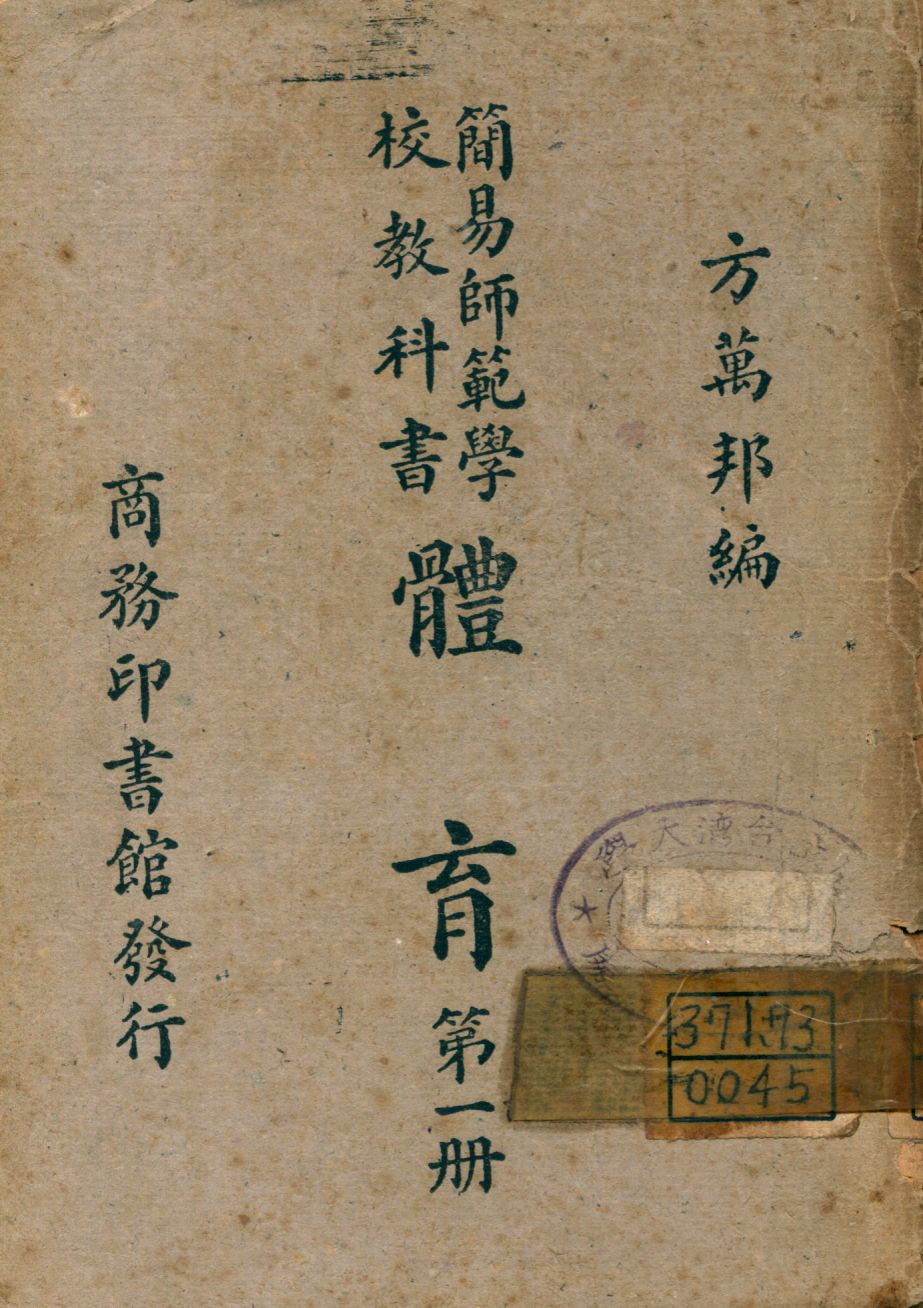 方萬邦編
簡易師範學
校教科書
體育 第一册
商務印書館發行
0045